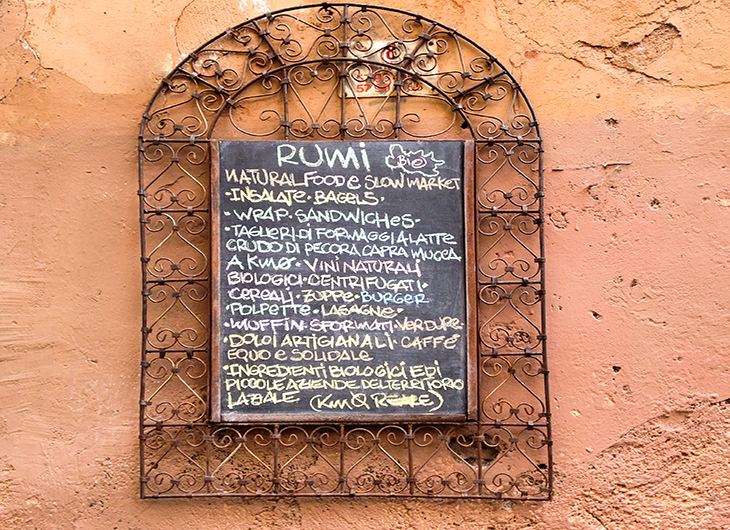 RUMI BIO
NATURAL FOOD e SLOW MARKET
·INSALATE·BAGELS·
·WRAP·SANDWICHES·
·TAGLIERI DI FORMAGGI A LATTE
CRUDO DI PECORA CAPRA MUCCA
A Km0·VINI NATURALI
BIOLOGICI·CENTRIFUGATI·
·CEREALI·ZUPPE·BURGER
·POLPETTE·LASAGNE·
·MUFFIN·SFORMATI·VERDURE·
·DOLCI ARTIGIANALI·CAFFÈ
EQUO E SOLIDALE
·INGREDIENTI BIOLOGICI E DI
PICCOLE AZIENDE DEL TERRITORIO
LAZIALE (Km 0 REALE)